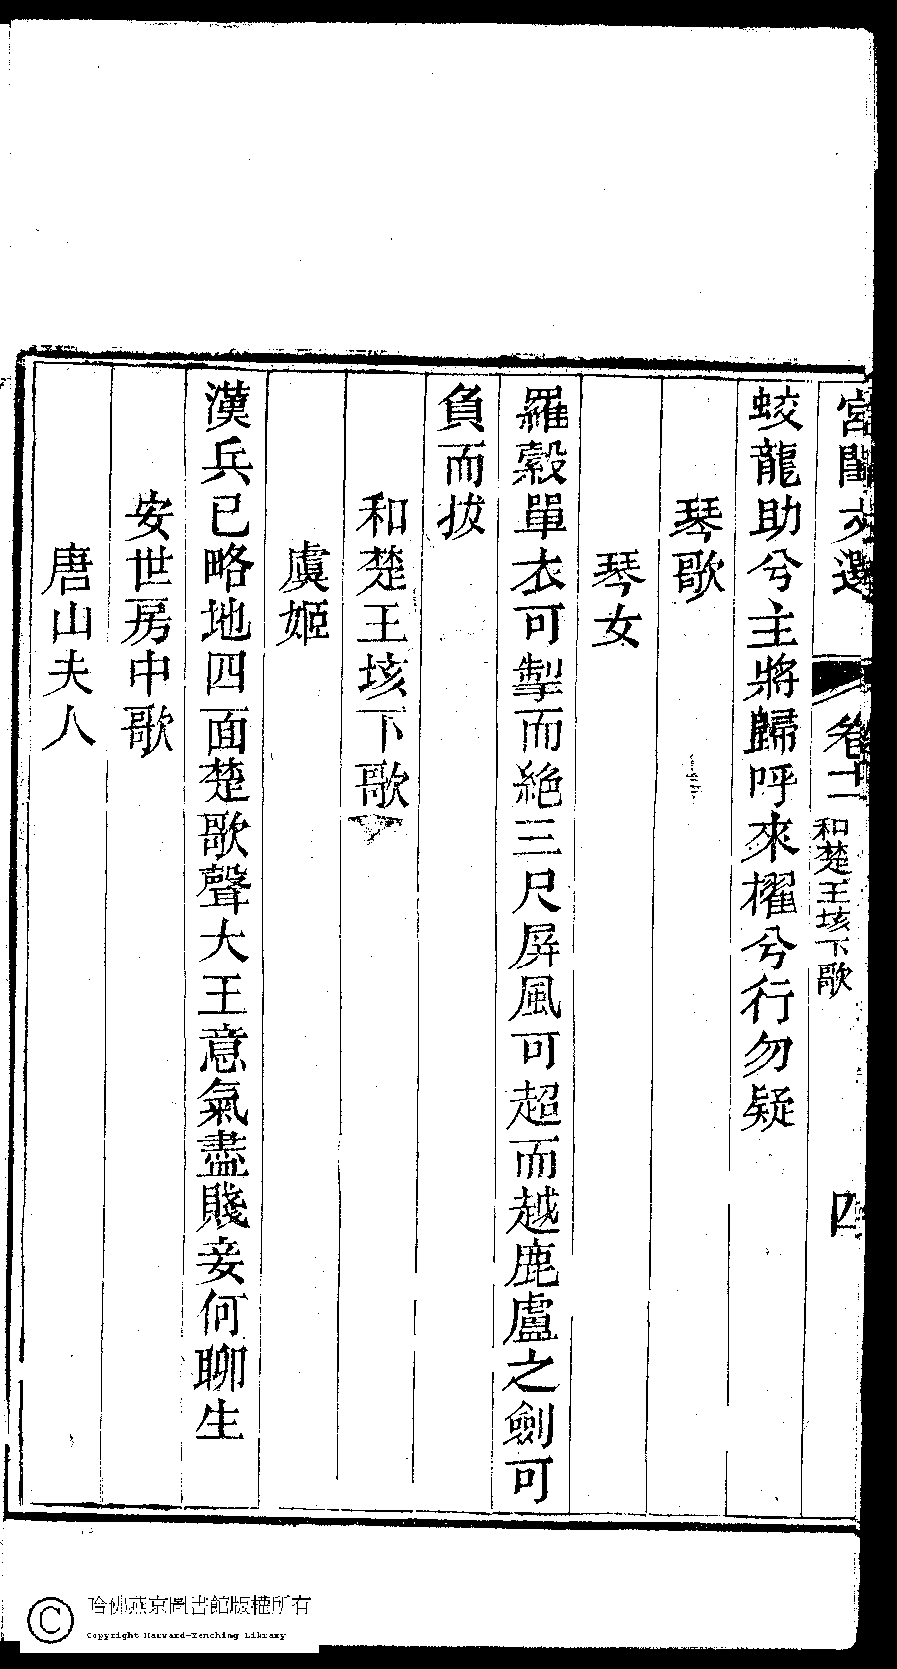 宮閨文選
卷十二
和楚王垓下歌
四
蛟龍助兮主將歸呼來櫂兮行勿疑
琴歌
琴女
羅縠單衣可掣而絶三尺屏風可超而越鹿盧之劍可
負而拔
和楚王垓下歌
虞姬
漢兵已略地四面楚歌聲大王意氣盡賤妾何聊生
安世房中歌
唐山夫人
哈佛燕京圖書館版權所有
Copyright Harvard-Yenching Library